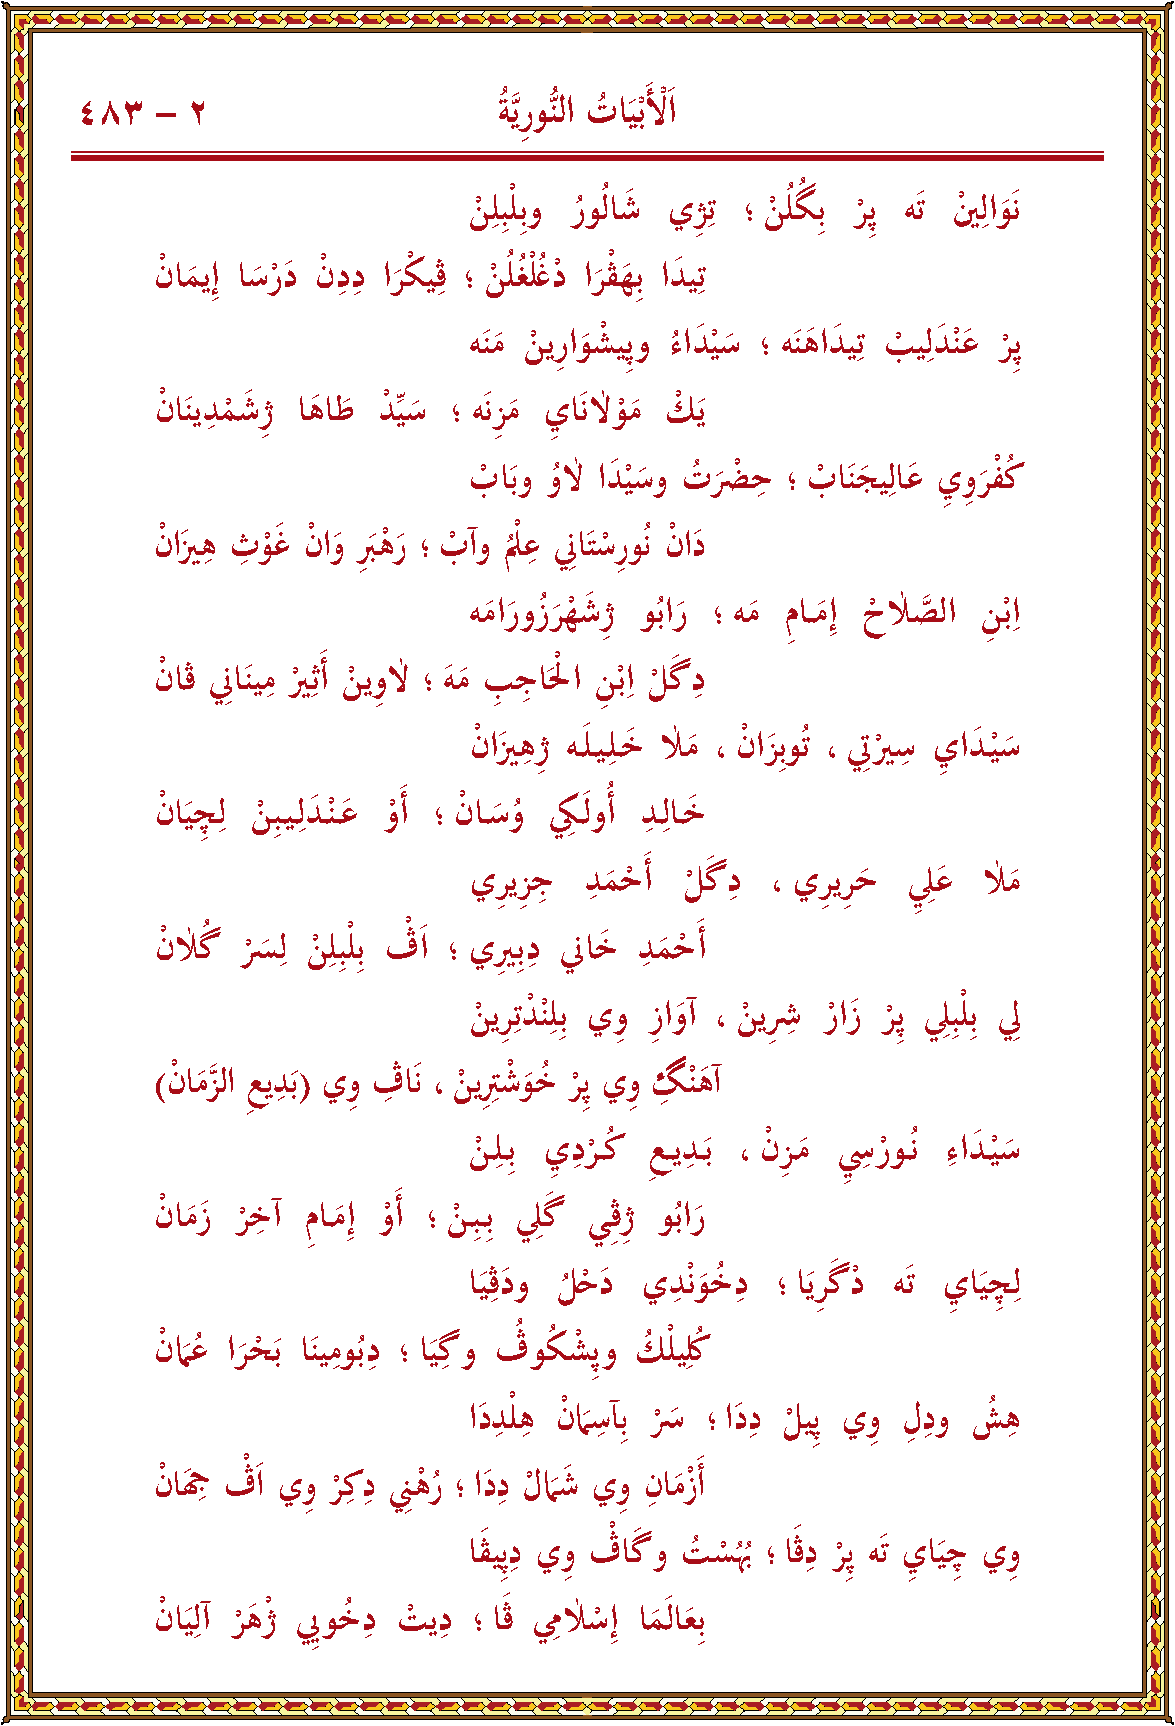 اَلْأَبْيَاتُ النُّورِيَّةُ ٢ – ٤٨٣
نَوَالِينْ تَه پِرْ بِگُلُنْ ؛ تِژِي شَالُورُ وبِلْبِلِنْ
تِيدَا بِهَڤْرَا دْغُلْغُلُنْ ؛ ڤِيكْرَا دِدِنْ دَرْسَا إِيمَانْ
پِرْ عَنْدَلِيبْ تِيدَاهَنَه ؛ سَيْدَاءُ وپِيشْوَارِينْ مَنَه
يَكْ مَوْلَانَايِ مَزِنَه ؛ سَيِّدْ طَاهَا ژِشَمْدِينَانْ
كُفْرَوِي عَالِيجَنَابْ ؛ حِضْرَتُ وسَيْدَا لَاوُ وبَابْ
دَانْ نُورِسْتَانِي عِلْمُ وآبْ ؛ رَهْبَرِ وَانْ غَوْثِ هِيزَانْ
اِبْنِ الصَّلَاحْ إِمَامِ مَه ؛ رَابُو ژِشَهْرَزُورَامَه
دِگَلْ اِبْنِ الْحَاجِبِ مَهَ ؛ لَاوِينْ أَثِيرْ مِينَانِي ڤَانْ
سَيْدَايِ سِيرْتِي ، تُوبِزَانْ ، مَلَا خَلِيلَه ژِهِيزَانْ
خَالِدِ أُولَكِي وُسَانْ ؛ أَوْ عَنْدَلِيبِنْ لِچِيَانْ
مَلَا عَلِي حَرِيرِي ، دِگَلْ أَحْمَدِ جِزِيرِي
أَحْمَدِ خَانِي دِبِيرِي ؛ اَڤْ بِلْبِلِنْ لِسَرْ گُلَانْ
لِي بِلْبِلِي پِرْ زَارْ شِرِينْ ، آوَازِ وِي بِلِنْدْتِرِينْ
آهَنْگِ وِي پِرْ خُوَشْتِرِينْ ، نَاڤِ وِي (بَدِيعِ الزَّمَانْ)
سَيْدَاءِ نُورْسِي مَزِنْ ، بَدِيعِ كُرْدِي بِلِنْ
رَابُو ژِڤِي گَلِي بِبِنْ ؛ أَوْ إِمَامِ آخِرْ زَمَانْ
لِچِيَايِ تَه دْگَرِيَا ؛ دِخُوَنْدِي دَحْلُ ودَڤِيَا
كُلِيلْكُ وپِشْكُوڤُ وگِيَا ؛ دِبُومِينَا بَحْرَا عُمَانْ
هِشُ ودِلِ وِي پِيلْ دِدَا ؛ سَرْ بِآسِمَانْ هِلْدِدَا
أَزْمَانِ وِي شَمَالْ دِدَا ؛ رُهْنِي دِكِرْ وِي اَڤْ جِهَانْ
وِي چِيَايِ تَه پِرْ دِڤَا ؛ بُهُسْتُ وگَاڤْ وِي دِپِيڤَا
بِعَالَمَا إِسْلَامِي ڤَا ؛ دِيتْ دِخُويِي ژْهَرْ آلِيَانْ